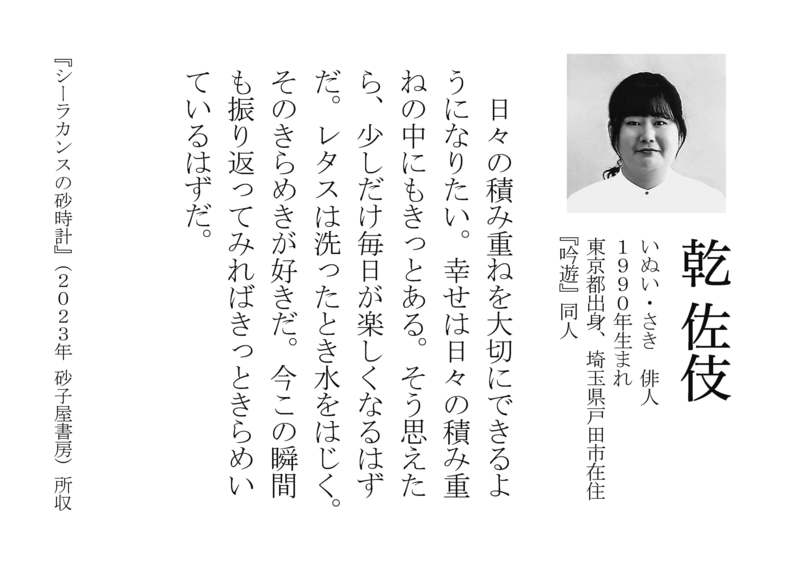 乾 佐伎
いぬい・さき　俳人
1990年生まれ
東京都出身、埼玉県戸田市在住
『吟遊』同人
　日々の積み重ねを大切にできるよ
うになりたい。幸せは日々の積み重
ねの中にもきっとある。そう思えた
ら、少しだけ毎日が楽しくなるはず
だ。レタスは洗ったとき水をはじく。
そのきらめきが好きだ。今この瞬間
も振り返ってみればきっときらめい
ているはずだ。
『シーラカンスの砂時計』（2023年 砂子屋書房）所収